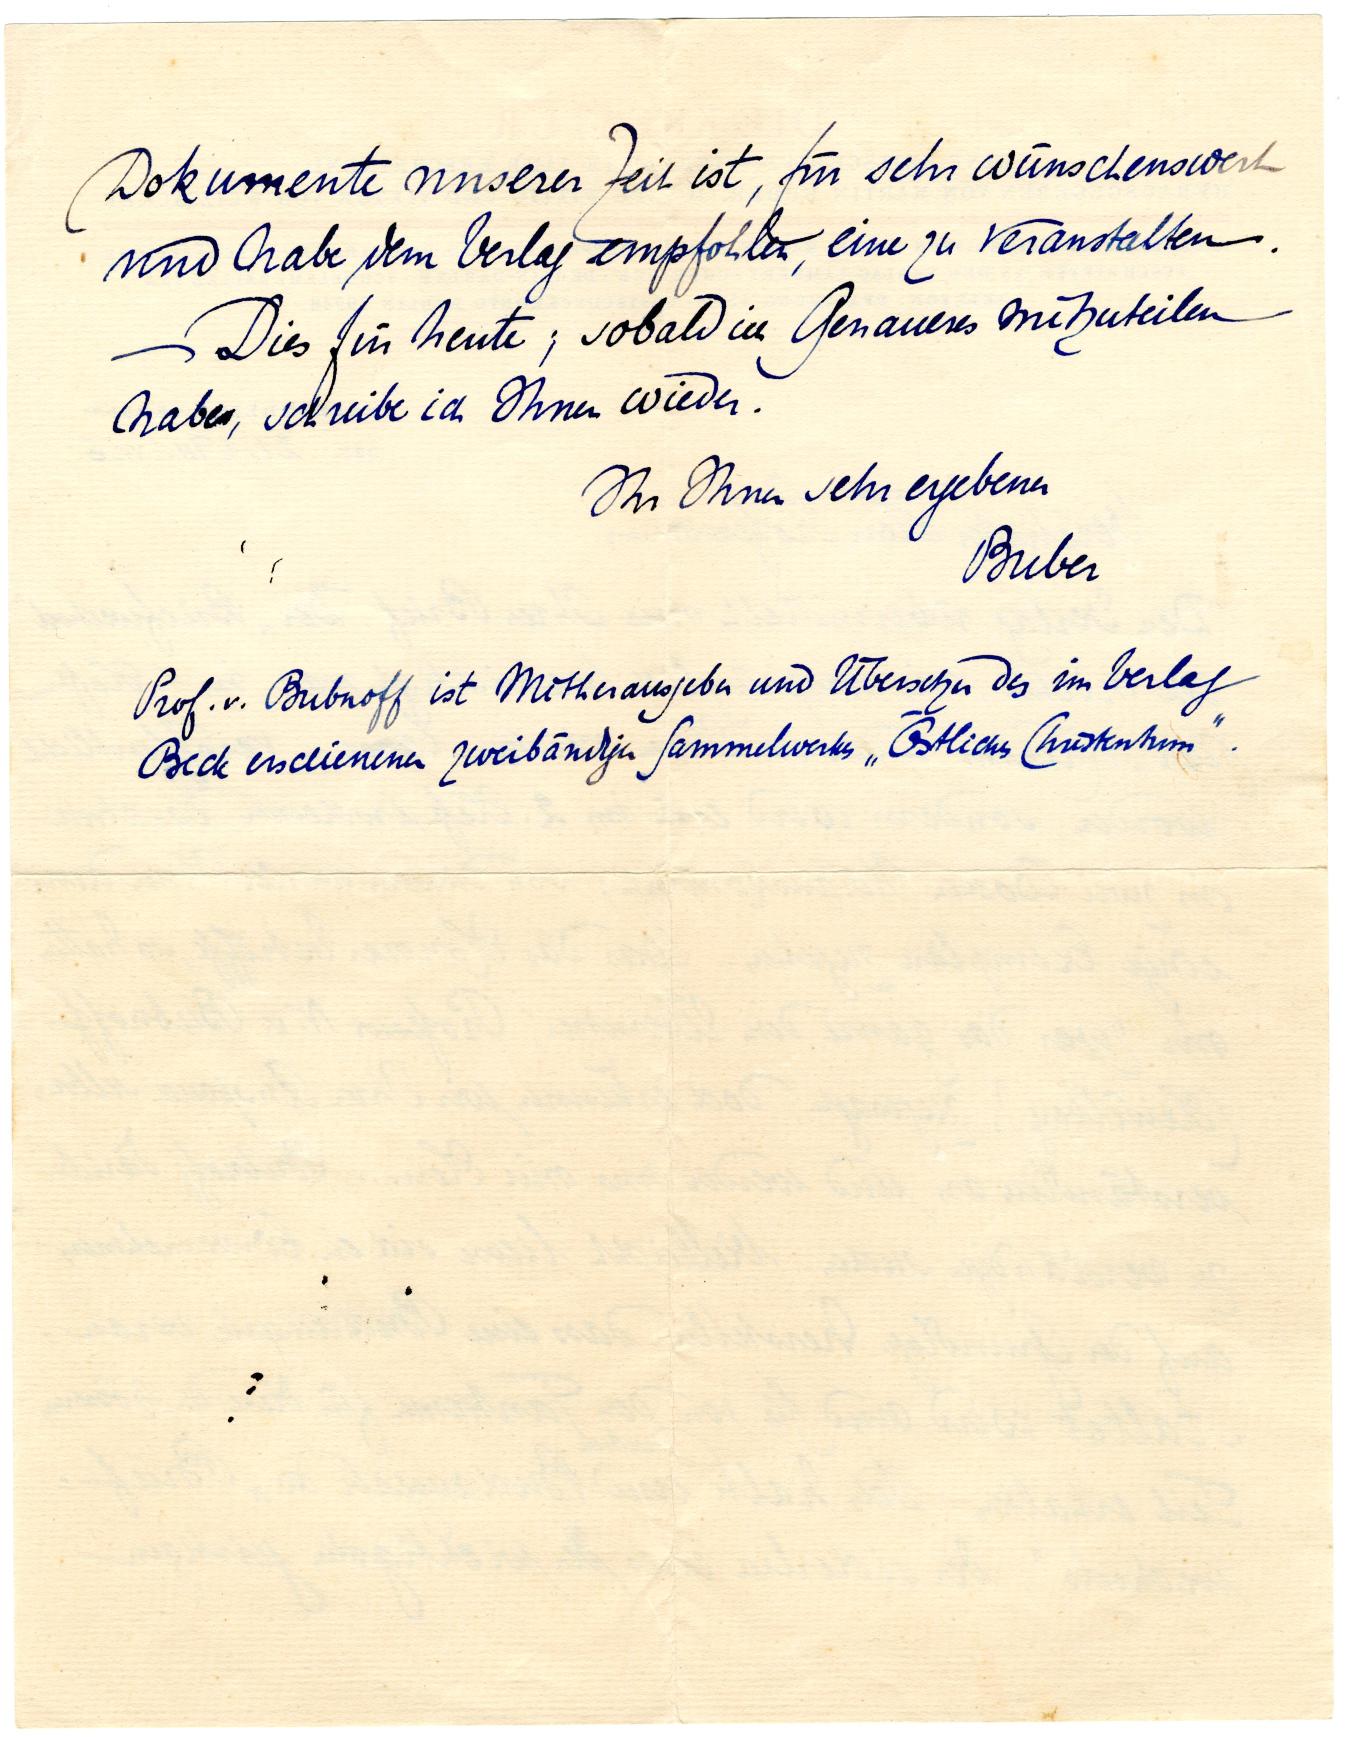 Dokumente unserer Zeit ist, für sehr wünschenswert
und habe dem Verlag empfohlen, eine zu veranstalten.
— Dies für heute; sobald ich Genaueres mitzuteilen
habe, schreibe ich Ihnen wieder.
Ihr Ihnen sehr ergebener
Buber
Prof. v. Bubnoff ist Mitherausgeber und Übersetzer des im Verlag
Beck erschienenen zweibändigen Sammelwerks „Östliches Christentum".